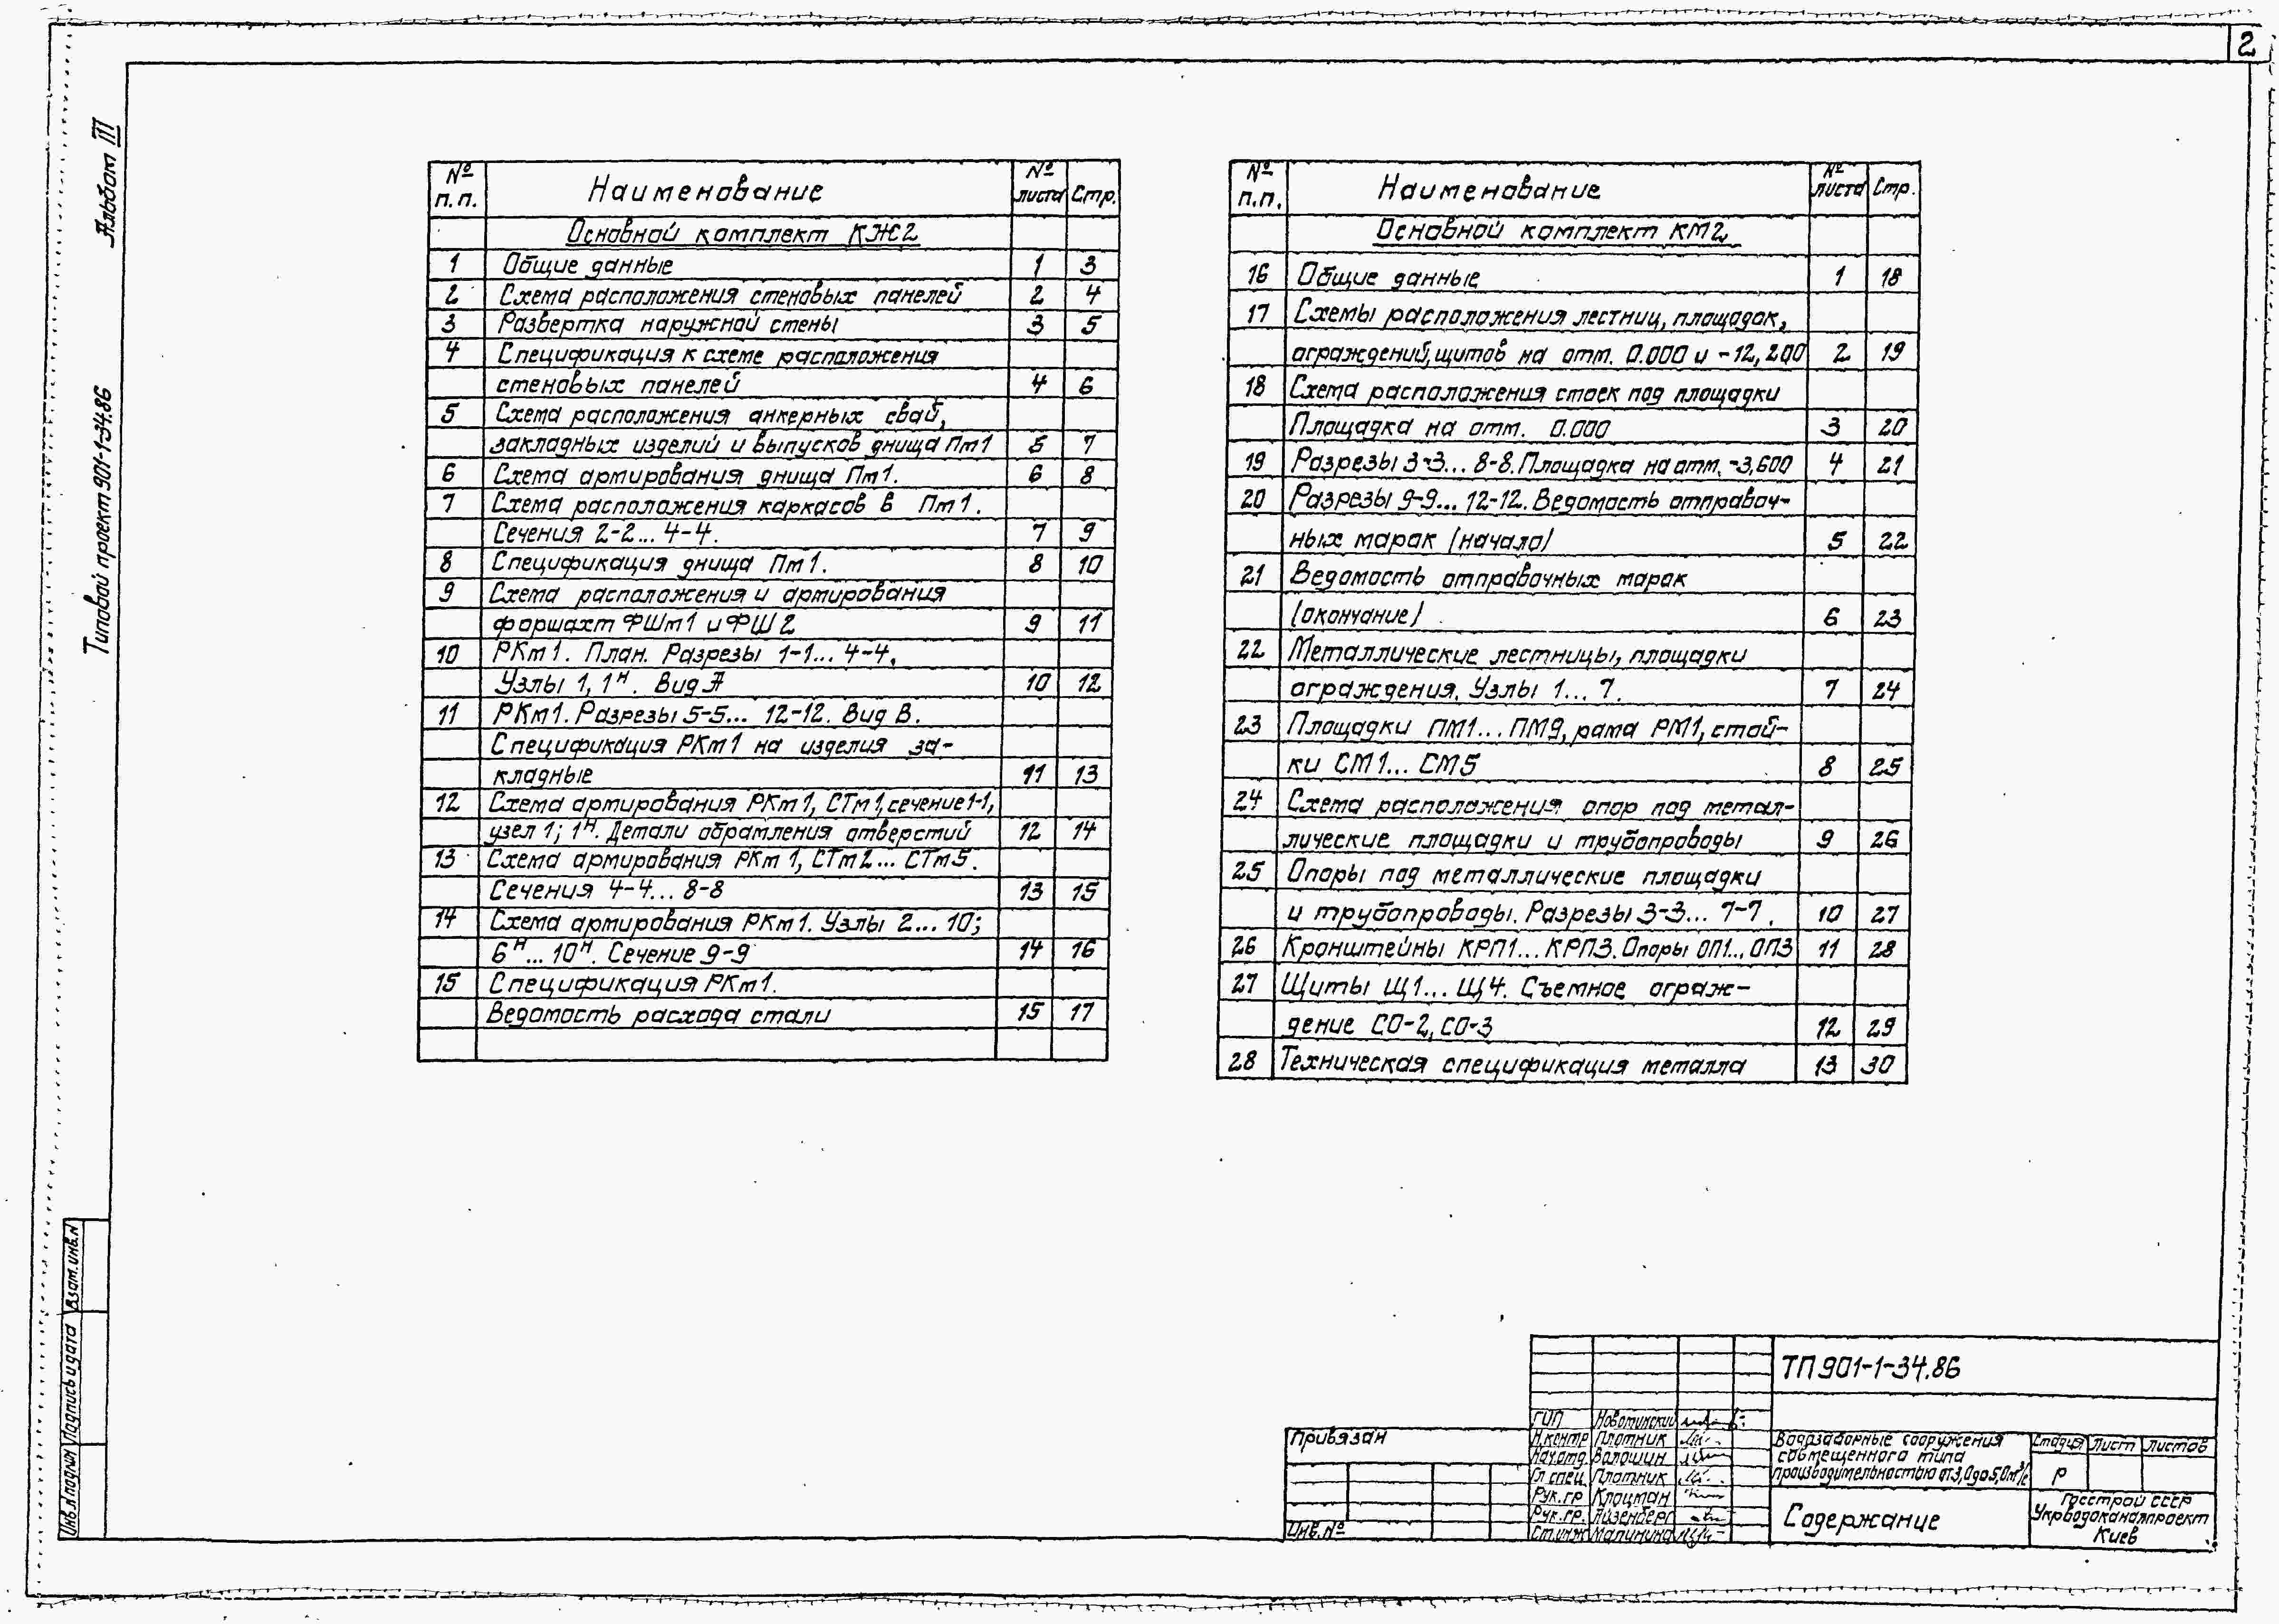 2
Альбом III
Типовой проект 901-1-34.86
№ п.п. Наименование № листа Стр.
Основной комплект КЖ2
1 Общие данные 1 3
2 Схема расположения стеновых панелей 2 4
3 Развертка наружной стены 3 5
4 Спецификация к схеме расположения
стеновых панелей 4 6
5 Схема расположения анкерных свай,
закладных изделий и выпусков днища Пм1 5 7
6 Схема армирования днища Пм1. 6 8
7 Схема расположения каркасов в Пм1.
Сечения 2-2... 4-4. 7 9
8 Спецификация днища Пм1. 8 10
9 Схема расположения и армирования
форшахт ФШм1 и ФШ2 9 11
10 РКм1. План. Разрезы 1-1... 4-4.
Узлы 1, 1н. Вид А 10 12
11 РКм1. Разрезы 5-5... 12-12. Вид В.
Спецификация РКм1 на изделия за-
кладные 11 13
12 Схема армирования РКм1, СТм1, сечение 1-1,
узел 1; 1н. Детали обрамления отверстий 12 14
13 Схема армирования РКм1, СТм2... СТм5.
Сечения 4-4... 8-8 13 15
14 Схема армирования РКм1. Узлы 2... 10;
6н... 10н. Сечение 9-9 14 16
15 Спецификация РКм1.
Ведомость расхода стали 15 17
№ п.п. Наименование № листа Стр.
Основной комплект КМ2
16 Общие данные 1 18
17 Схемы расположения лестниц, площадок,
ограждений, щитов на отм. 0.000 и -12,200 2 19
18 Схема расположения стоек под площадки
Площадка на отм. 0.000 3 20
19 Разрезы 3-3... 8-8. Площадка на отм. -3,600 4 21
20 Разрезы 9-9... 12-12. Ведомость отправоч-
ных марок (начало) 5 22
21 Ведомость отправочных марок
(окончание) 6 23
22 Металлические лестницы, площадки
ограждения. Узлы 1... 7. 7 24
23 Площадки ПМ1... ПМ9, рама РМ1, стой-
ки СМ1... СМ5 8 25
24 Схема расположения опор под метал-
лические площадки и трубопроводы 9 26
25 Опоры под металлические площадки
и трубопроводы. Разрезы 3-3... 7-7. 10 27
26 Кронштейны КРП1... КРП3. Опоры ОП1... ОП3 11 28
27 Щиты Щ1... Щ4. Съемное ограж-
дение СО-2, СО-3 12 29
28 Техническая спецификация металла 13 30
Взам. инв. N
Подпись и дата
Инв. N подлин
Привязан
Инв. №
ТП 901-1-34.86
ГИП Новотинский
Н.контр Плотник
Нач.отд. Волошин
Гл.спец. Плотник
Рук.гр Клоцман
Рук.гр. Айзенберг
Ст.инж Малинина
Водозаборные сооружения
совмещенного типа
производительностью от 3,0 до 5,0 м³/с
Стадия Лист Листов
Р
Содержание
Госстрой СССР
Укрводоканалпроект
Киев